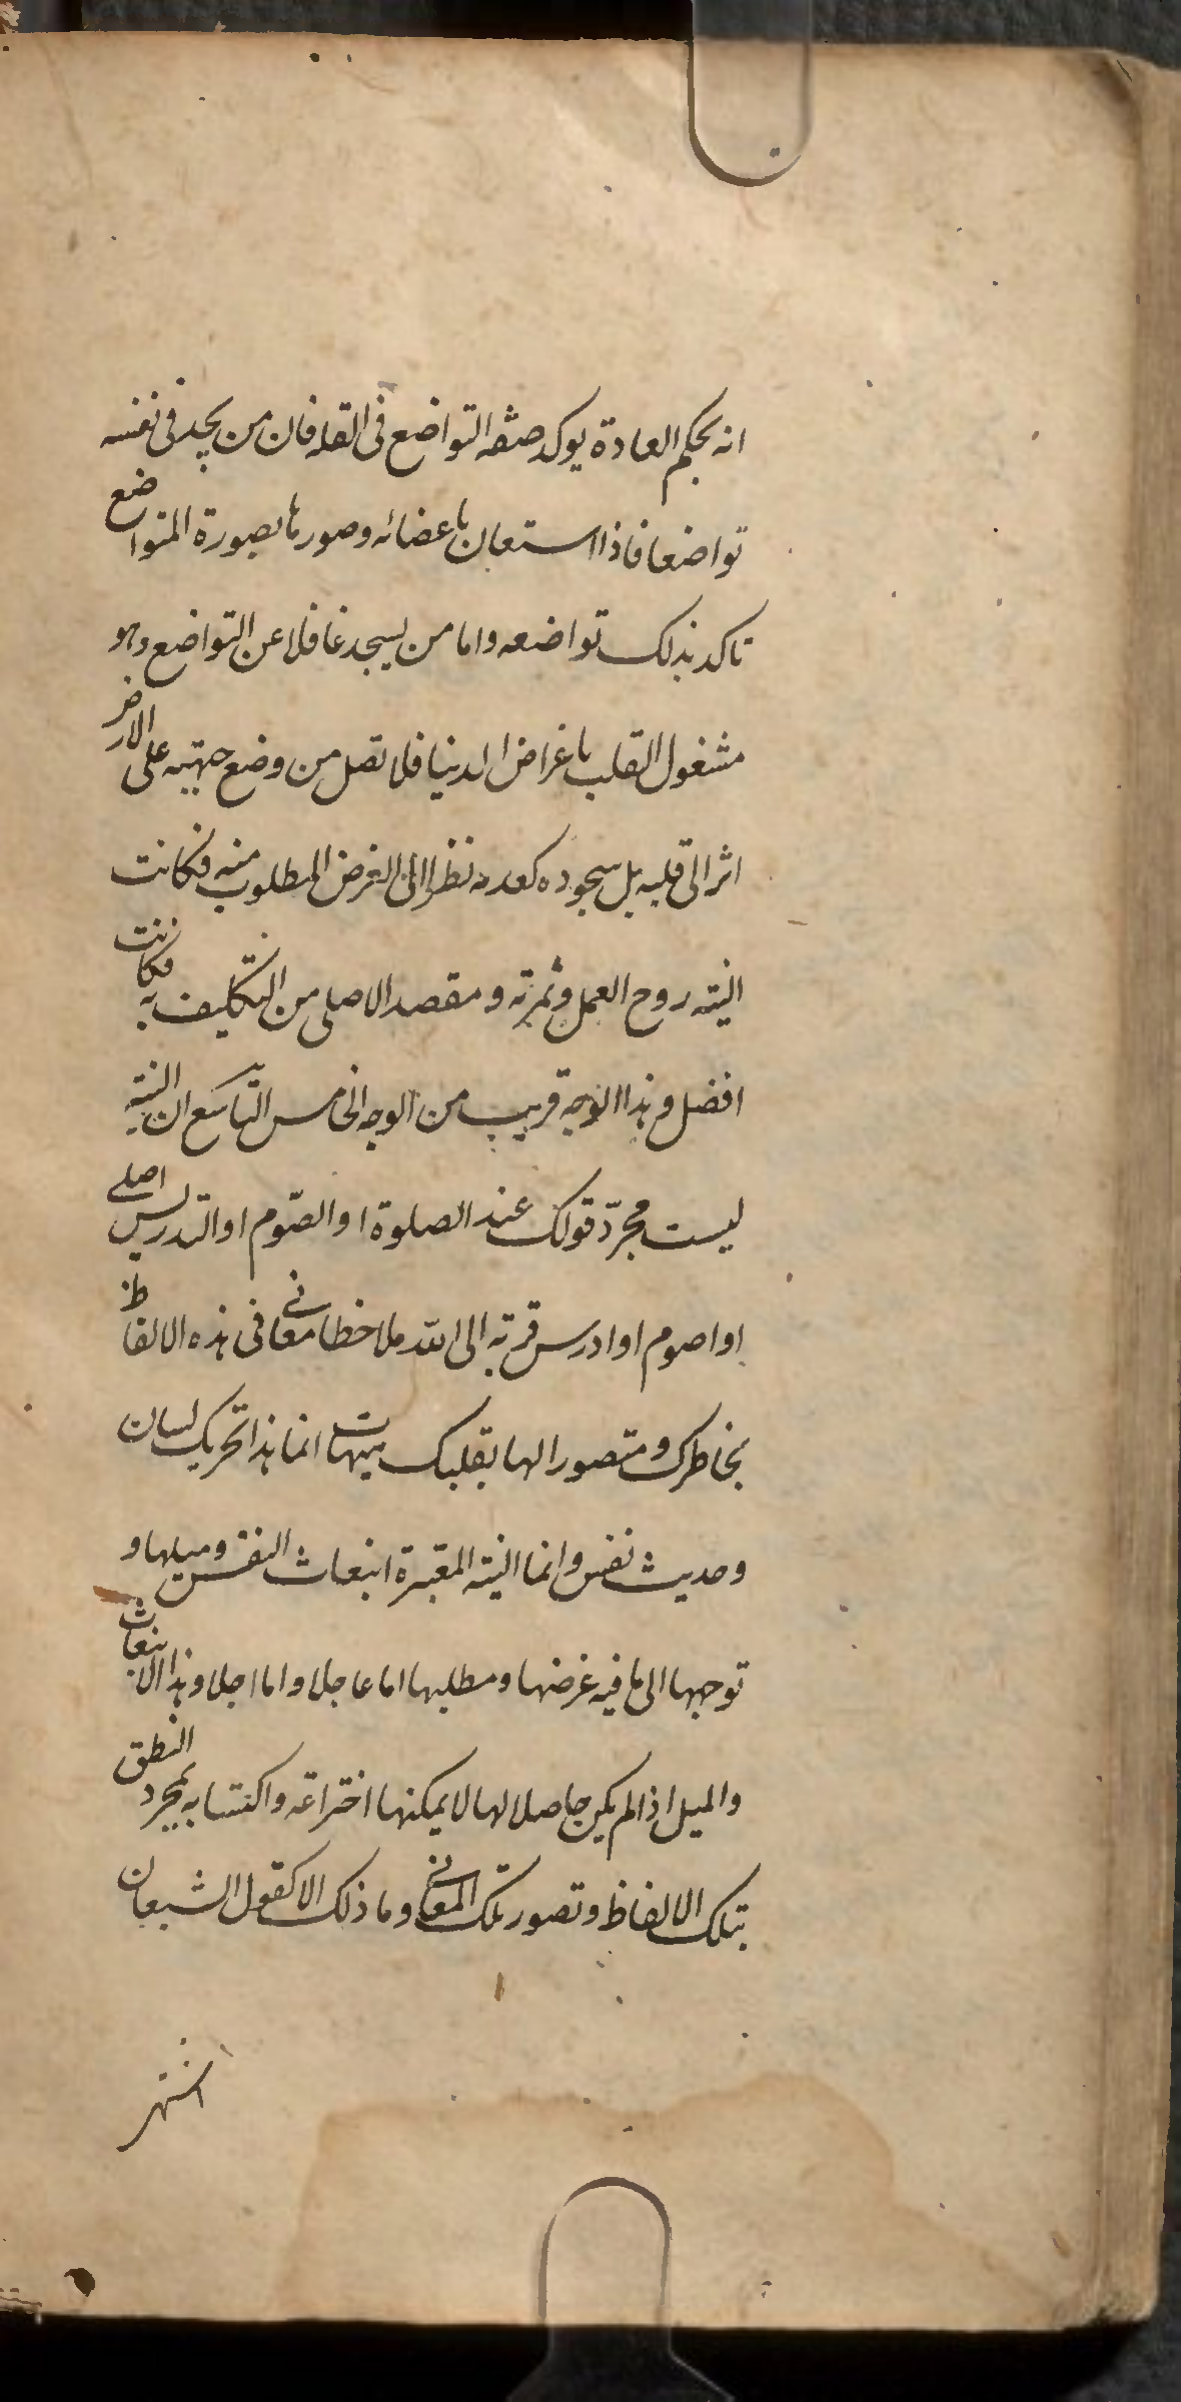 انه بحكم العادة يوكد صفة التواضع فى القلب فان من يجد فى نفسه
تواضعا فاذا استعان باعضائه وصورها بصورة المتواضع
تاكد بذلك تواضعه واما من يسجد غافلا عن التواضع وهو
مشغول القلب باغراض الدنيا فلا تصل من وضع جبهته على الارض
اثر الى قلبه بل سجوده كعدمه نظرا الى الغرض المطلوب منه فكانت
النية روح العمل وثمرته ومقصد الاصلى من التكليف به فكانت
افضل وهذا الوجه قريب من الوجه الخامس التاسع ان النية
ليست مجرّد قولك عند الصلوة او الصّوم او التدريس اصلے
او اصوم او ادرس قربة الى الله ملاحظا معانى هذه الالفاظ
بخاطرك ومتصورا لها بقلبك هيهات انما هذا تحريك لسان
وحديث نفس وانما النية المعتبرة انبعاث النفس وميلها و
توجهها الى ما فيه غرضها ومطلبها اما عاجلا واما اجلا وهذا الانبعاث
والميل اذا لم يكن حاصلا لها لا يمكنها اختراعه واكتسابه بمجرد النطق
بتلك الالفاظ وتصور تلك المعانے وما ذلك الا كقول الشبعان
اشتهر